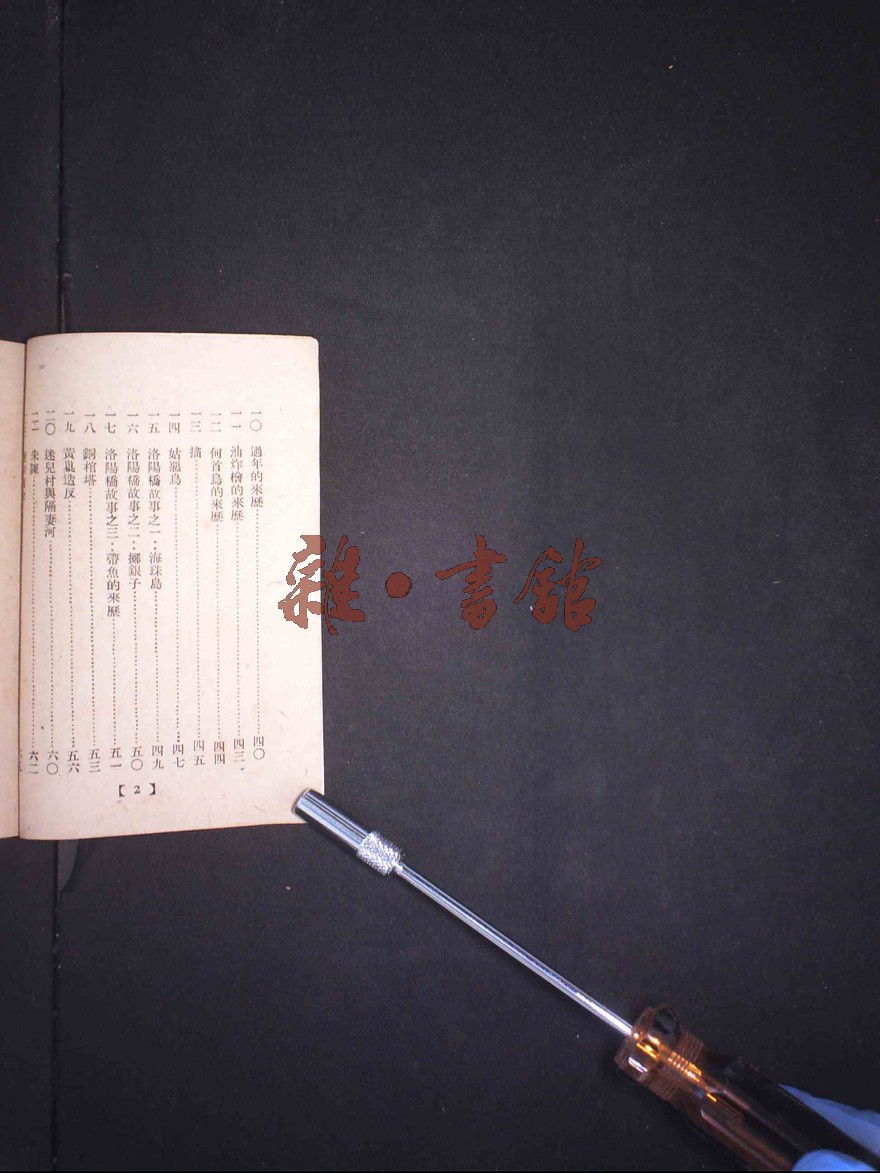 一〇 過年的來歷……四〇
一一 油炸檜的來歷……四三
一二 何首烏的來歷……四四
一三 擂……四五
一四 姑惡鳥……四七
一五 洛陽橋故事之一：海珠島……四九
一六 洛陽橋故事之二：擲銀子……五〇
一七 洛陽橋故事之三：帶魚的來歷……五一
一八 銅棺塔……五三
一九 黃巢造反……五六
二〇 迷兒村與隔妻河……六〇
二一 朱陳……六二
【2】
雜・書館